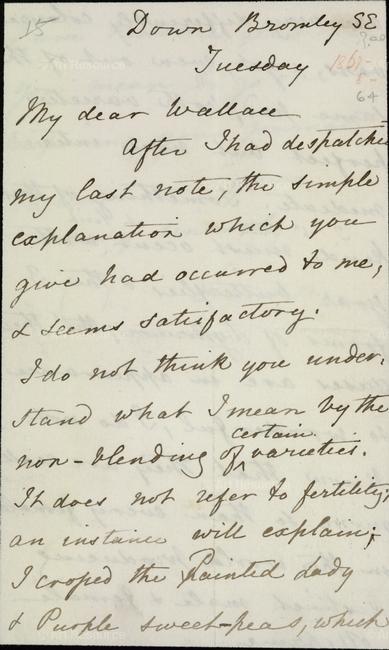 15
Down Bromley SE
Tuesday
186
64
My dear Wallace
After I had despatched
my last note, the simple
explanation which you
give had occurred to me,
& seems satisfactory.
I do not think you under-
stand what I mean by the
certain
non-blending of varieties.
It does not refer to fertility;
an instance will explain;
I croped the Painted Lady
& Purple sweet-peas, which